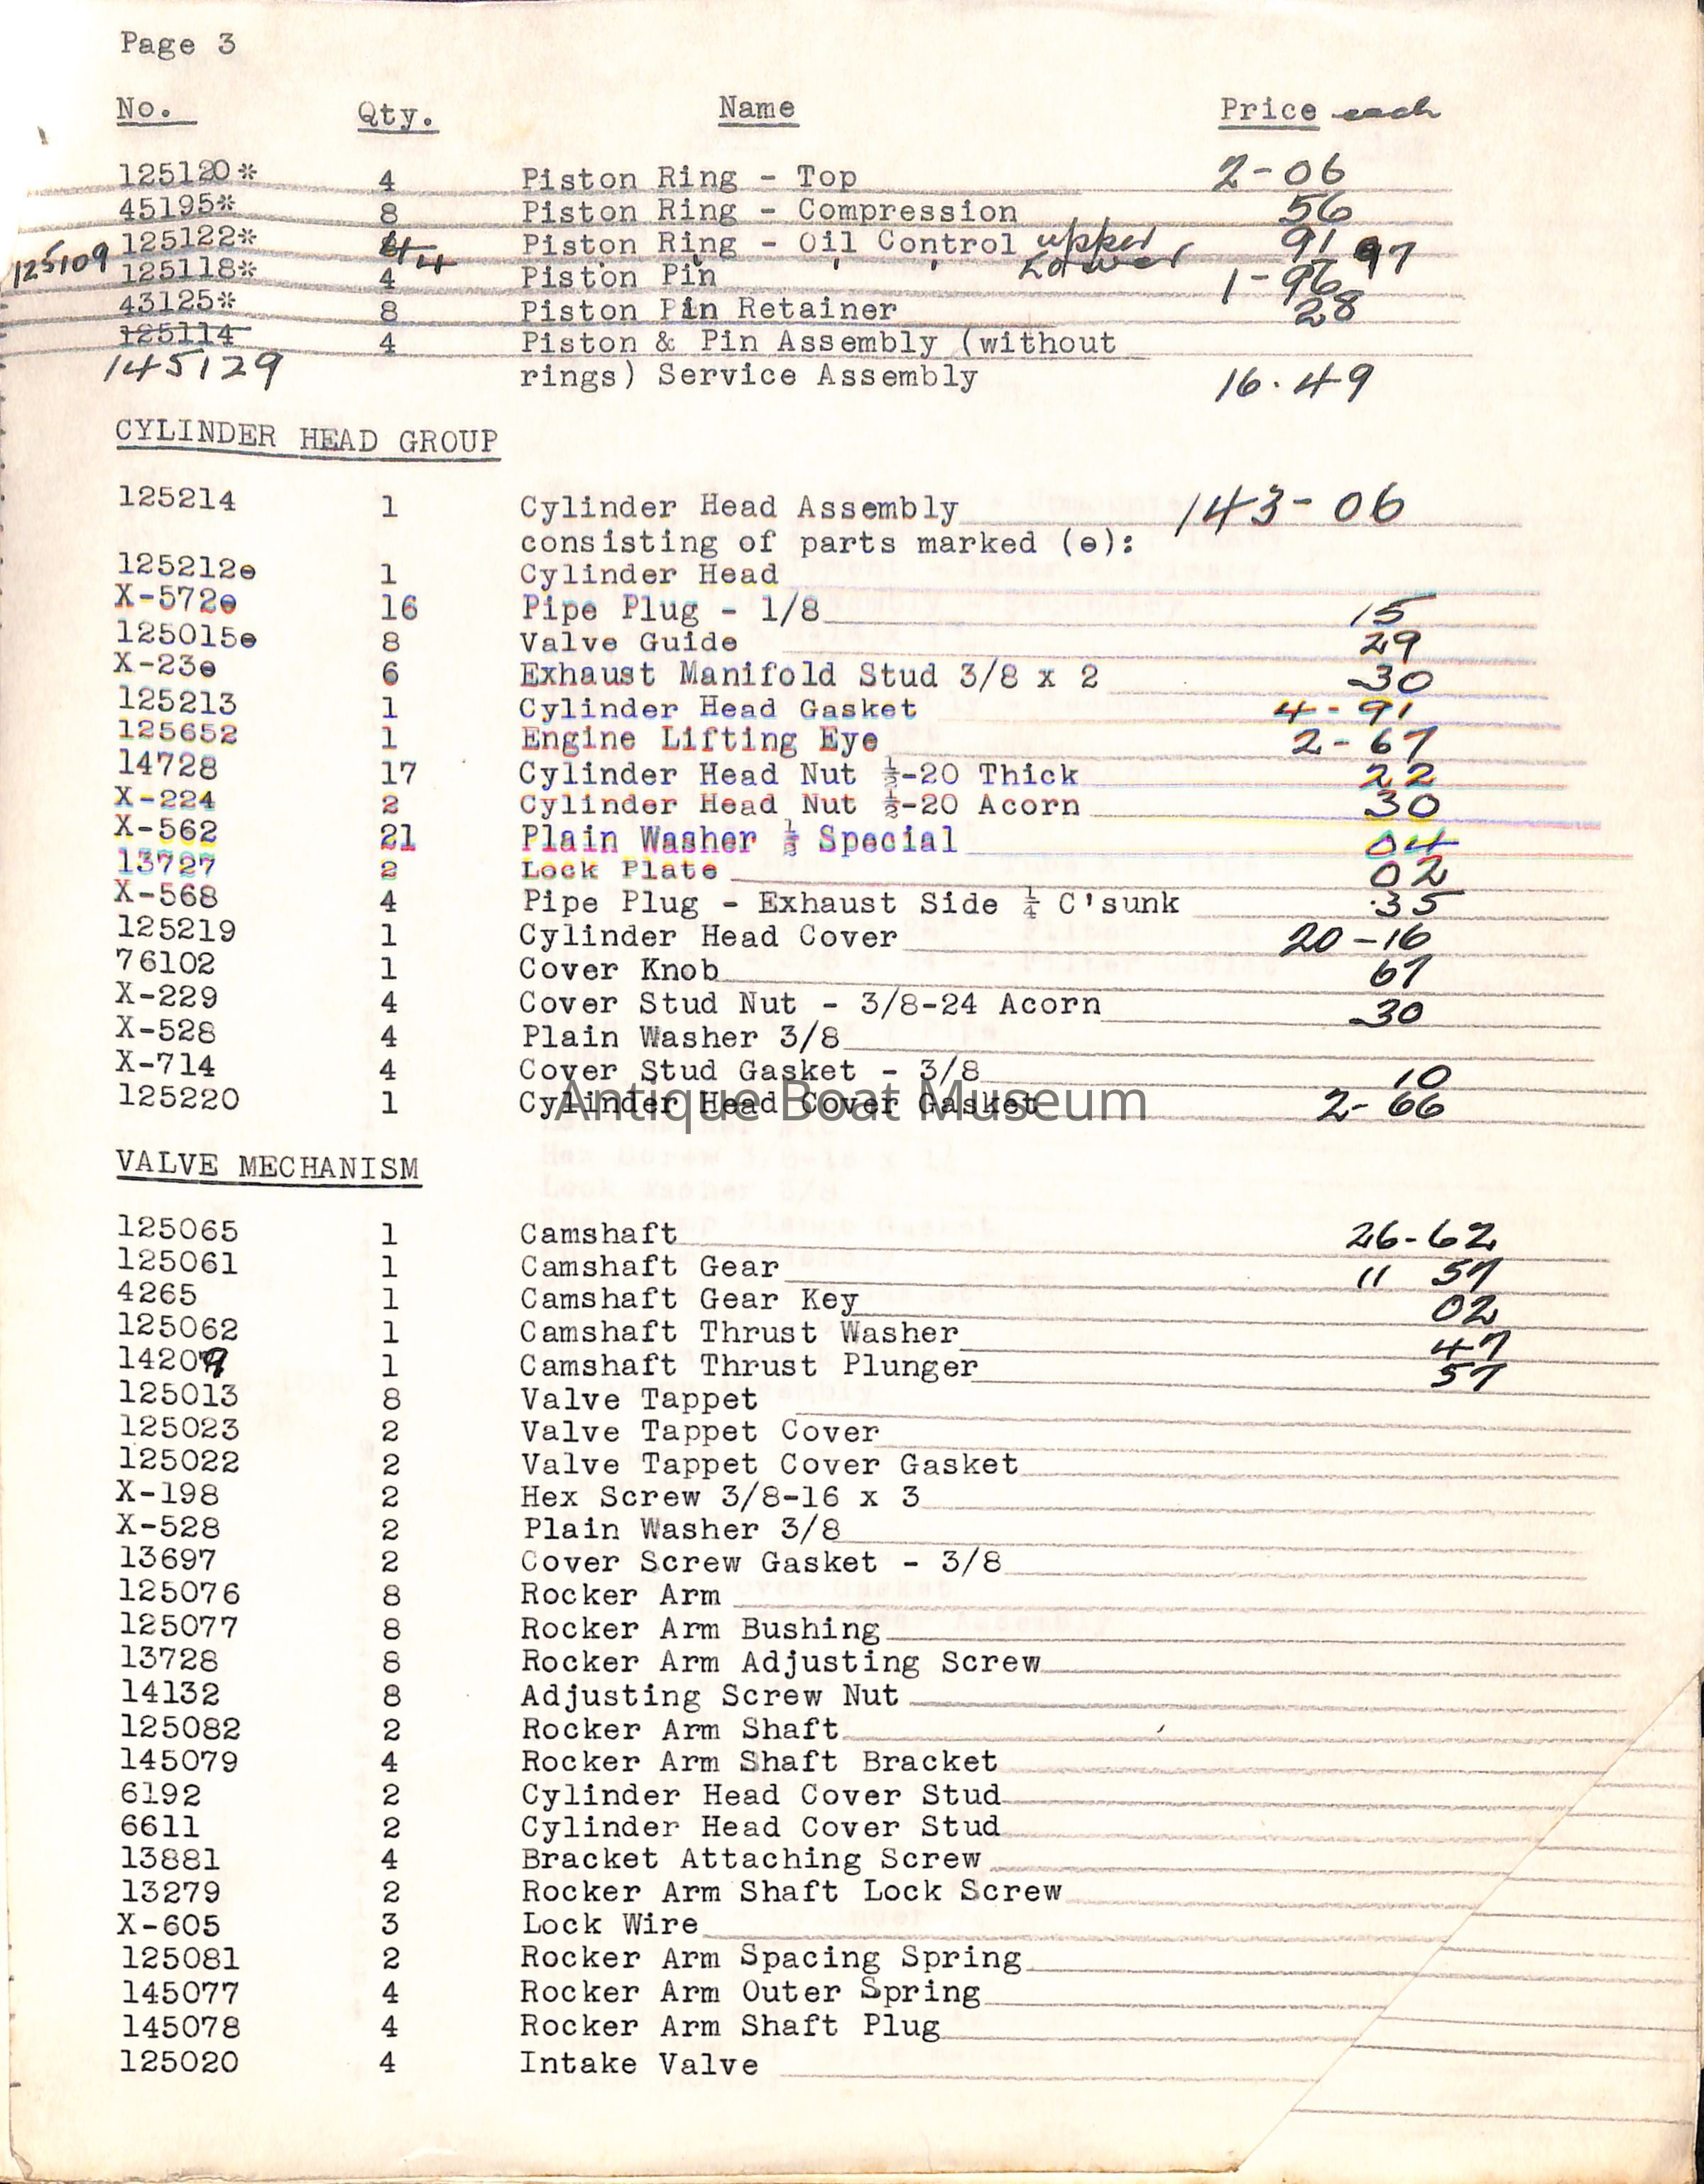 Page 3
No. Qty. Name Price each
125120* 4 Piston Ring - Top 2-06
45195* 8 Piston Ring - Compression 56
125122* 4 Piston Ring - Oil Control upper 91
125109 4 " " Lower 97
125118* 4 Piston Pin 1-96
43125* 8 Piston Pin Retainer 28
125114 4 Piston & Pin Assembly (without
145129 rings) Service Assembly 16.49
CYLINDER HEAD GROUP
125214 1 Cylinder Head Assembly 143-06
consisting of parts marked (e):
125212e 1 Cylinder Head
X-572e 16 Pipe Plug - 1/8 15
125015e 8 Valve Guide 29
X-23e 6 Exhaust Manifold Stud 3/8 x 2 30
125213 1 Cylinder Head Gasket 4-91
125652 1 Engine Lifting Eye 2-67
14728 17 Cylinder Head Nut ½-20 Thick 22
X-224 2 Cylinder Head Nut ½-20 Acorn 30
X-562 21 Plain Washer ½ Special 04
13727 2 Lock Plate 02
X-568 4 Pipe Plug - Exhaust Side ¼ C'sunk .35
125219 1 Cylinder Head Cover 20-16
76102 1 Cover Knob 67
X-229 4 Cover Stud Nut - 3/8-24 Acorn 30
X-528 4 Plain Washer 3/8
X-714 4 Cover Stud Gasket - 3/8 10
125220 1 Cylinder Head Cover Gasket 2-66
Antique Boat Museum
VALVE MECHANISM
125065 1 Camshaft 26-62
125061 1 Camshaft Gear 11 57
4265 1 Camshaft Gear Key 02
125062 1 Camshaft Thrust Washer 47
14209 1 Camshaft Thrust Plunger 57
125013 8 Valve Tappet
125023 2 Valve Tappet Cover
125022 2 Valve Tappet Cover Gasket
X-198 2 Hex Screw 3/8-16 x 3
X-528 2 Plain Washer 3/8
13697 2 Cover Screw Gasket - 3/8
125076 8 Rocker Arm
125077 8 Rocker Arm Bushing
13728 8 Rocker Arm Adjusting Screw
14132 8 Adjusting Screw Nut
125082 2 Rocker Arm Shaft
145079 4 Rocker Arm Shaft Bracket
6192 2 Cylinder Head Cover Stud
6611 2 Cylinder Head Cover Stud
13881 4 Bracket Attaching Screw
13279 2 Rocker Arm Shaft Lock Screw
X-605 3 Lock Wire
125081 2 Rocker Arm Spacing Spring
145077 4 Rocker Arm Outer Spring
145078 4 Rocker Arm Shaft Plug
125020 4 Intake Valve